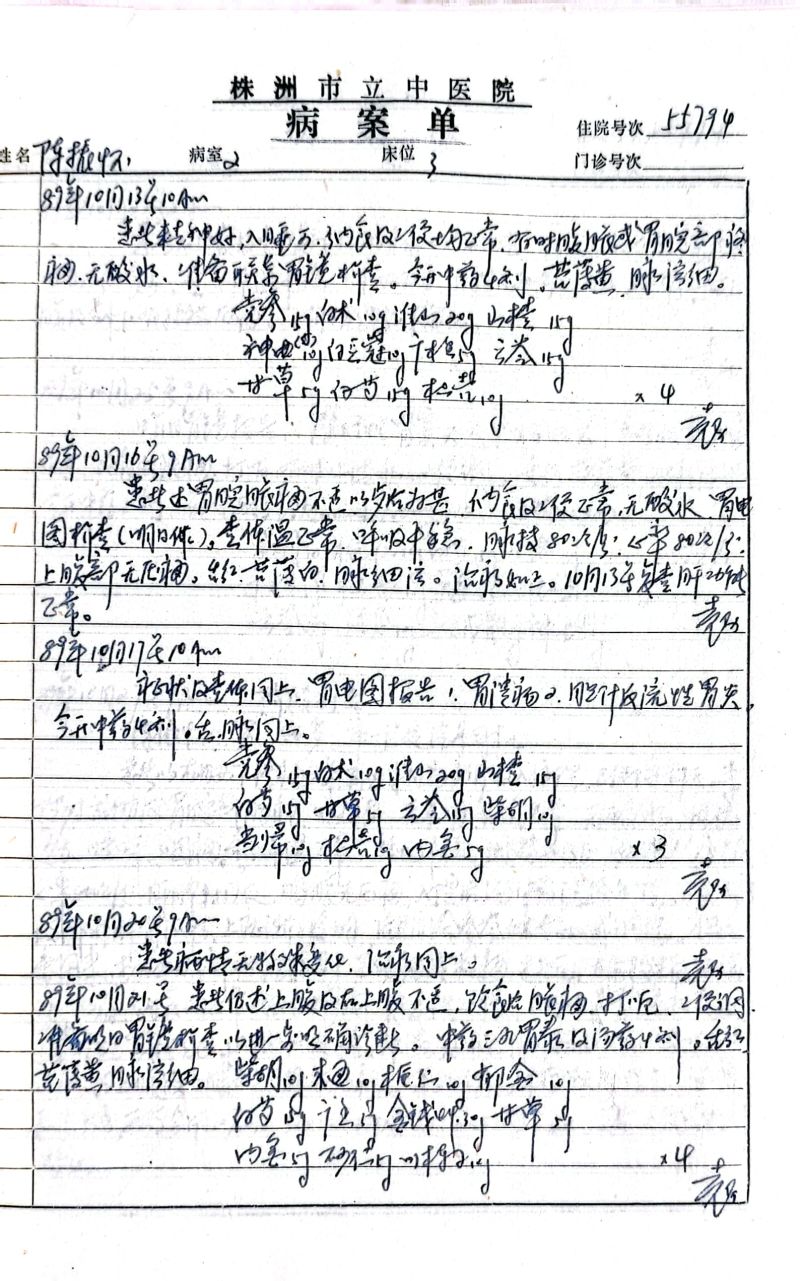 株洲市立中医院
病案单
住院号次 55794
姓名 陈振 病室 2 床位 3 门诊号次
89年10月13号10Am
患者精神好，入睡可，纳食及二便均正常，有时腹胀或胃脘部疼
痛，无酸水，准备联系胃镜检查。今开中药4剂，苔薄黄，脉弦细。
党参15g 白术10g 淮山20g 山楂15g
神曲10g 白豆蔻10g 广木香5g 云苓15g
甘草5g 白芍15g 枳壳10g ×4
袁
89年10月16号9Am
患者述胃脘胀痛不适以夜间为甚，纳食及二便正常，无酸水，胃电
图检查(明日作)。查体温正常，呼吸平稳，脉搏80次/分，心率80次/分，
上腹部无压痛。舌红，苔薄白，脉细弦。治疗如上。10月13号复查肝功能
正常。
袁
89年10月17号10Am
症状及查体同上，胃电图报告：1.胃溃疡 2.胆汁反流性胃炎，
今开中药4剂。舌脉同上。
党参15g 白术10g 淮山20g 山楂15g
白芍15g 甘草5g 云苓15g 柴胡10g
当归10g 枳壳10g 内金5g ×3
袁
89年10月20号9Am
患者病情无特殊变化，治疗同上。
袁
89年10月21号 患者仍述上腹及右上腹不适，饮食后胀痛，打呃，二便调，
准备明日胃镜检查以进一步明确诊断。中药三九胃泰及汤药4剂。舌红
苔薄黄脉弦细。 柴胡10g 10g 10g 郁金10g
白芍15g 5g 金钱草30g 甘草5g
内金5g 砂仁5g 川楝子10g ×4
袁